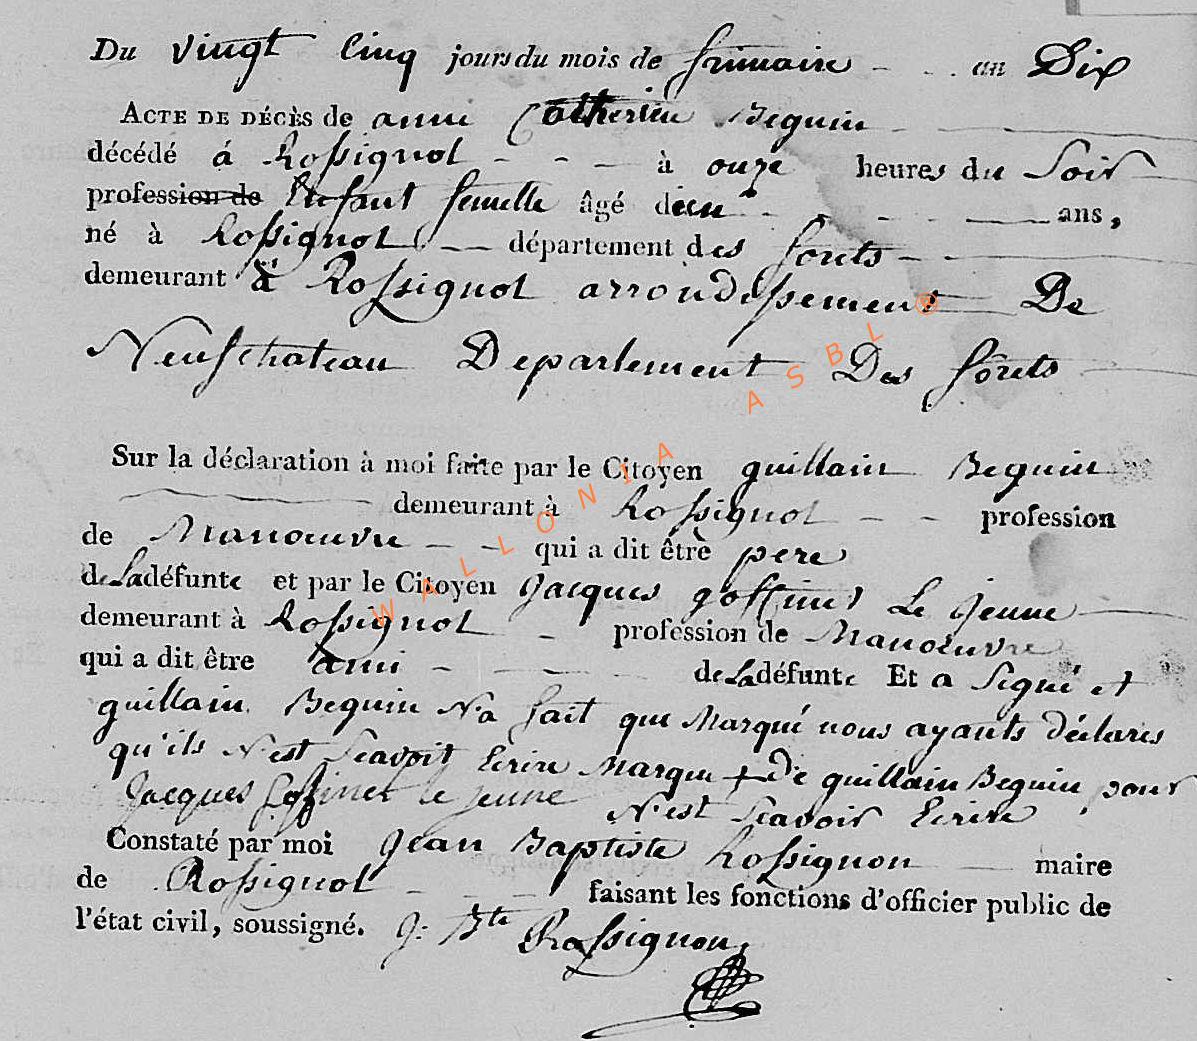 Du vingt Cinq jours du mois de frimaire - . . an Dix
ACTE DE DÉCÈS de anne Catherine Beguin
décédé á Rossignol - - - à onze heures du Soir
profession de Enfant femelle âgé d'un - - ans,
né à Rossignol - département des forêts -
demeurant à Rossignol arrondissement De
Neufchateau Departement Des forêts
Sur la déclaration à moi faite par le Citoyen guillain Beguin
demeurant à Rossignol - - profession
de Manoeuvre - - qui a dit être pere
de La défunte et par le Citoyen Jacques goffinet Le Jeune
demeurant à Rossignol - profession de Manoeuvre
qui a dit être ami - - de La défunte Et a Signé et
guillain Beguin N'a fait que Marqué nous ayants déclares
qu'ils N'est Scavoit Ecrire Marque + De guillain Beguin pour
Jacques Goffinet le jeune N'est Scavoir Ecrire
Constaté par moi Jean Baptiste Rossignon maire
de Rossignol - - - faisant les fonctions d'officier public de
l'état civil, soussigné. J: Bte Rossignon
WALLONIA ASBL ®